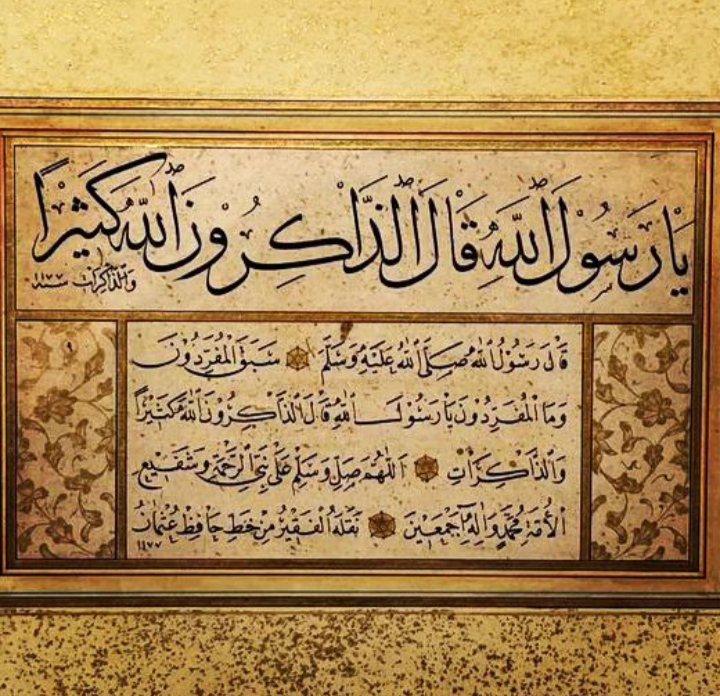 يَا رَسُولَ اللَّهِ قَالَ الذَّاكِرُونَ اللَّهَ كَثِيْرًا
وَالذَّاكِرَاتِ سنة ١١٧٧
٩
قَالَ رَسُولُ اللهِ صَلَّى اللهُ عَلَيْهِ وَسَلَّمَ سَبَقَ الْمُفَرِّدُونَ
وَمَا الْمُفَرِّدُونَ يَا رَسُولَ اللهِ قَالَ الذَّاكِرُونَ اللهَ كَثِيْرًا
وَالذَّاكِرَاتِ اَللّٰهُمَّ صَلِّ وَسَلِّمْ عَلَى نَبِيِّ الرَّحْمَةِ وَشَفِيْعِ
الْأُمَّةِ مُحَمَّدٍ وَاٰلِهِ اَجْمَعِيْنَ نَقَلَهُ الْفَقِيْرُ مِنْ خَطِّ حَافِظْ عُثْمَانْ
١١٧٧